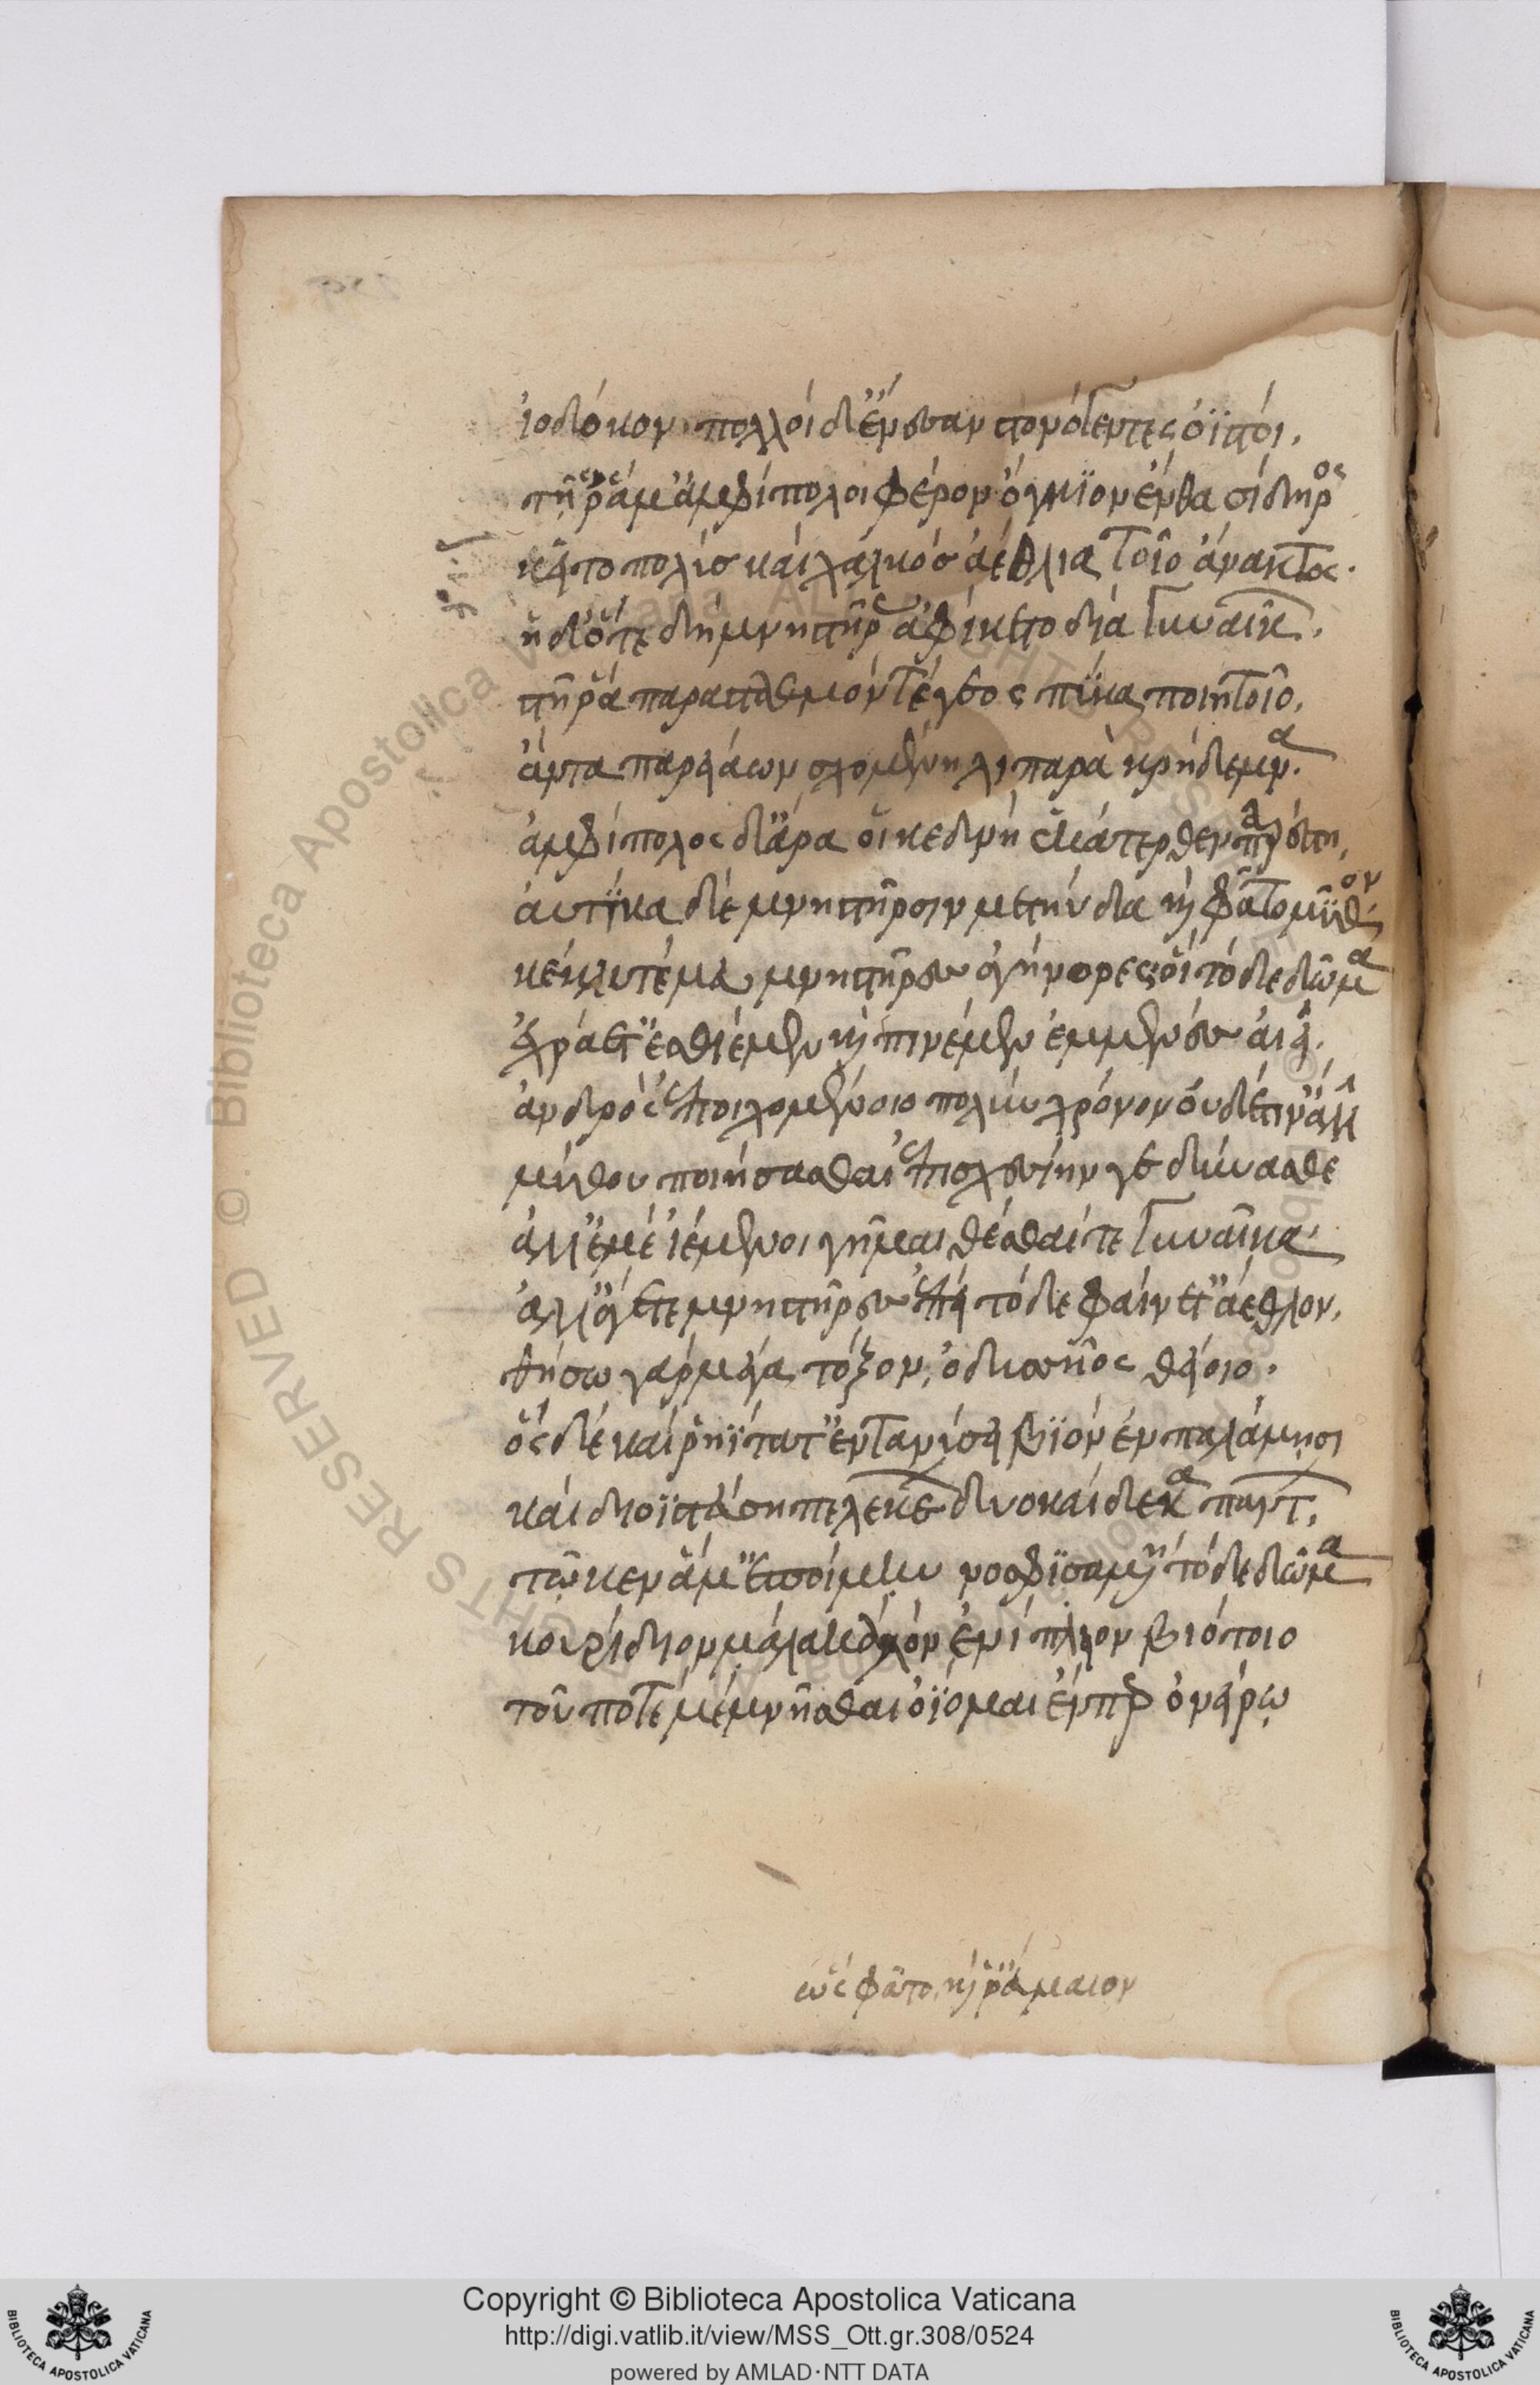 ἰοδόκον πολλοὶ δ' ἔνεσαν στονόεντες ὀϊστοί.
τῇ δ' ἄρ' ἅμ' ἀμφίπολοι φέρον ὄγκιον ἔνθα σίδηρος
κεῖτο πολὺσ καὶ χαλκὸσ ἀέθλια τοῖο ἄνακτος.
ἡ δ' ὅτε δὴ μνηστῆρας ἀφίκετο δῖα γυναικῶν.
στῆ ῥα παρα σταθμὸν τέγεος πύκα ποιητοῖο.
ἄντα παρειάων σχομένη λιπαρὰ κρήδεμνα.
ἀμφίπολος δ' ἄρα οἱ κεδνὴ ἑκάτερθεν παρέστη.
αὐτίκα δὲ μνηστῆρσιν μετηύδα καὶ φάτο μῦθον
κέκλυτέ μευ μνηστῆρες ἀγήνορες οἳ τόδε δῶμα
ἐχράετ' ἐσθιέμεν καὶ πινέμεν ἐμμενὲς αἰεί.
ἀνδρὸς ἐποιχομένοιο πολὺν χρόνον οὐδέ τιν' ἄλλην
μύθου ποιήσασθαι ἐπισχεσίην γε δύνασθε
ἀλλ' ἐμὲ ἱέμενοι γῆμαι θέσθαί τε γυναῖκα.
ἀλλ' ἄγετε μνηστῆρες ἐπεὶ τόδε φαίνετ' ἄεθλον.
θήσω γὰρ μέγα τόξον, ὀδυσσῆος θείοιο.
ὃς δέ κεν ῥηΐτατ' ἐντανύσῃ βιὸν ἐν παλάμῃσι
καὶ διοϊστεύσῃ πελέκεων δυοκαίδεκα πάντων.
τῷ κεν ἅμ' ἑσποίμην νοσφισαμένη τόδε δῶμα
κουρίδιον μάλα καλὸν ἐνίπλειον βιότοιο
τοῦ ποτε μεμνῆσθαι ὀΐομαι ἔν περ ὀνείρῳ
ὣς φάτο, καί ῥ' εὔμαιον
Copyright © Biblioteca Apostolica Vaticana
http://digi.vatlib.it/view/MSS_Ott.gr.308/0524
powered by AMLAD·NTT DATA